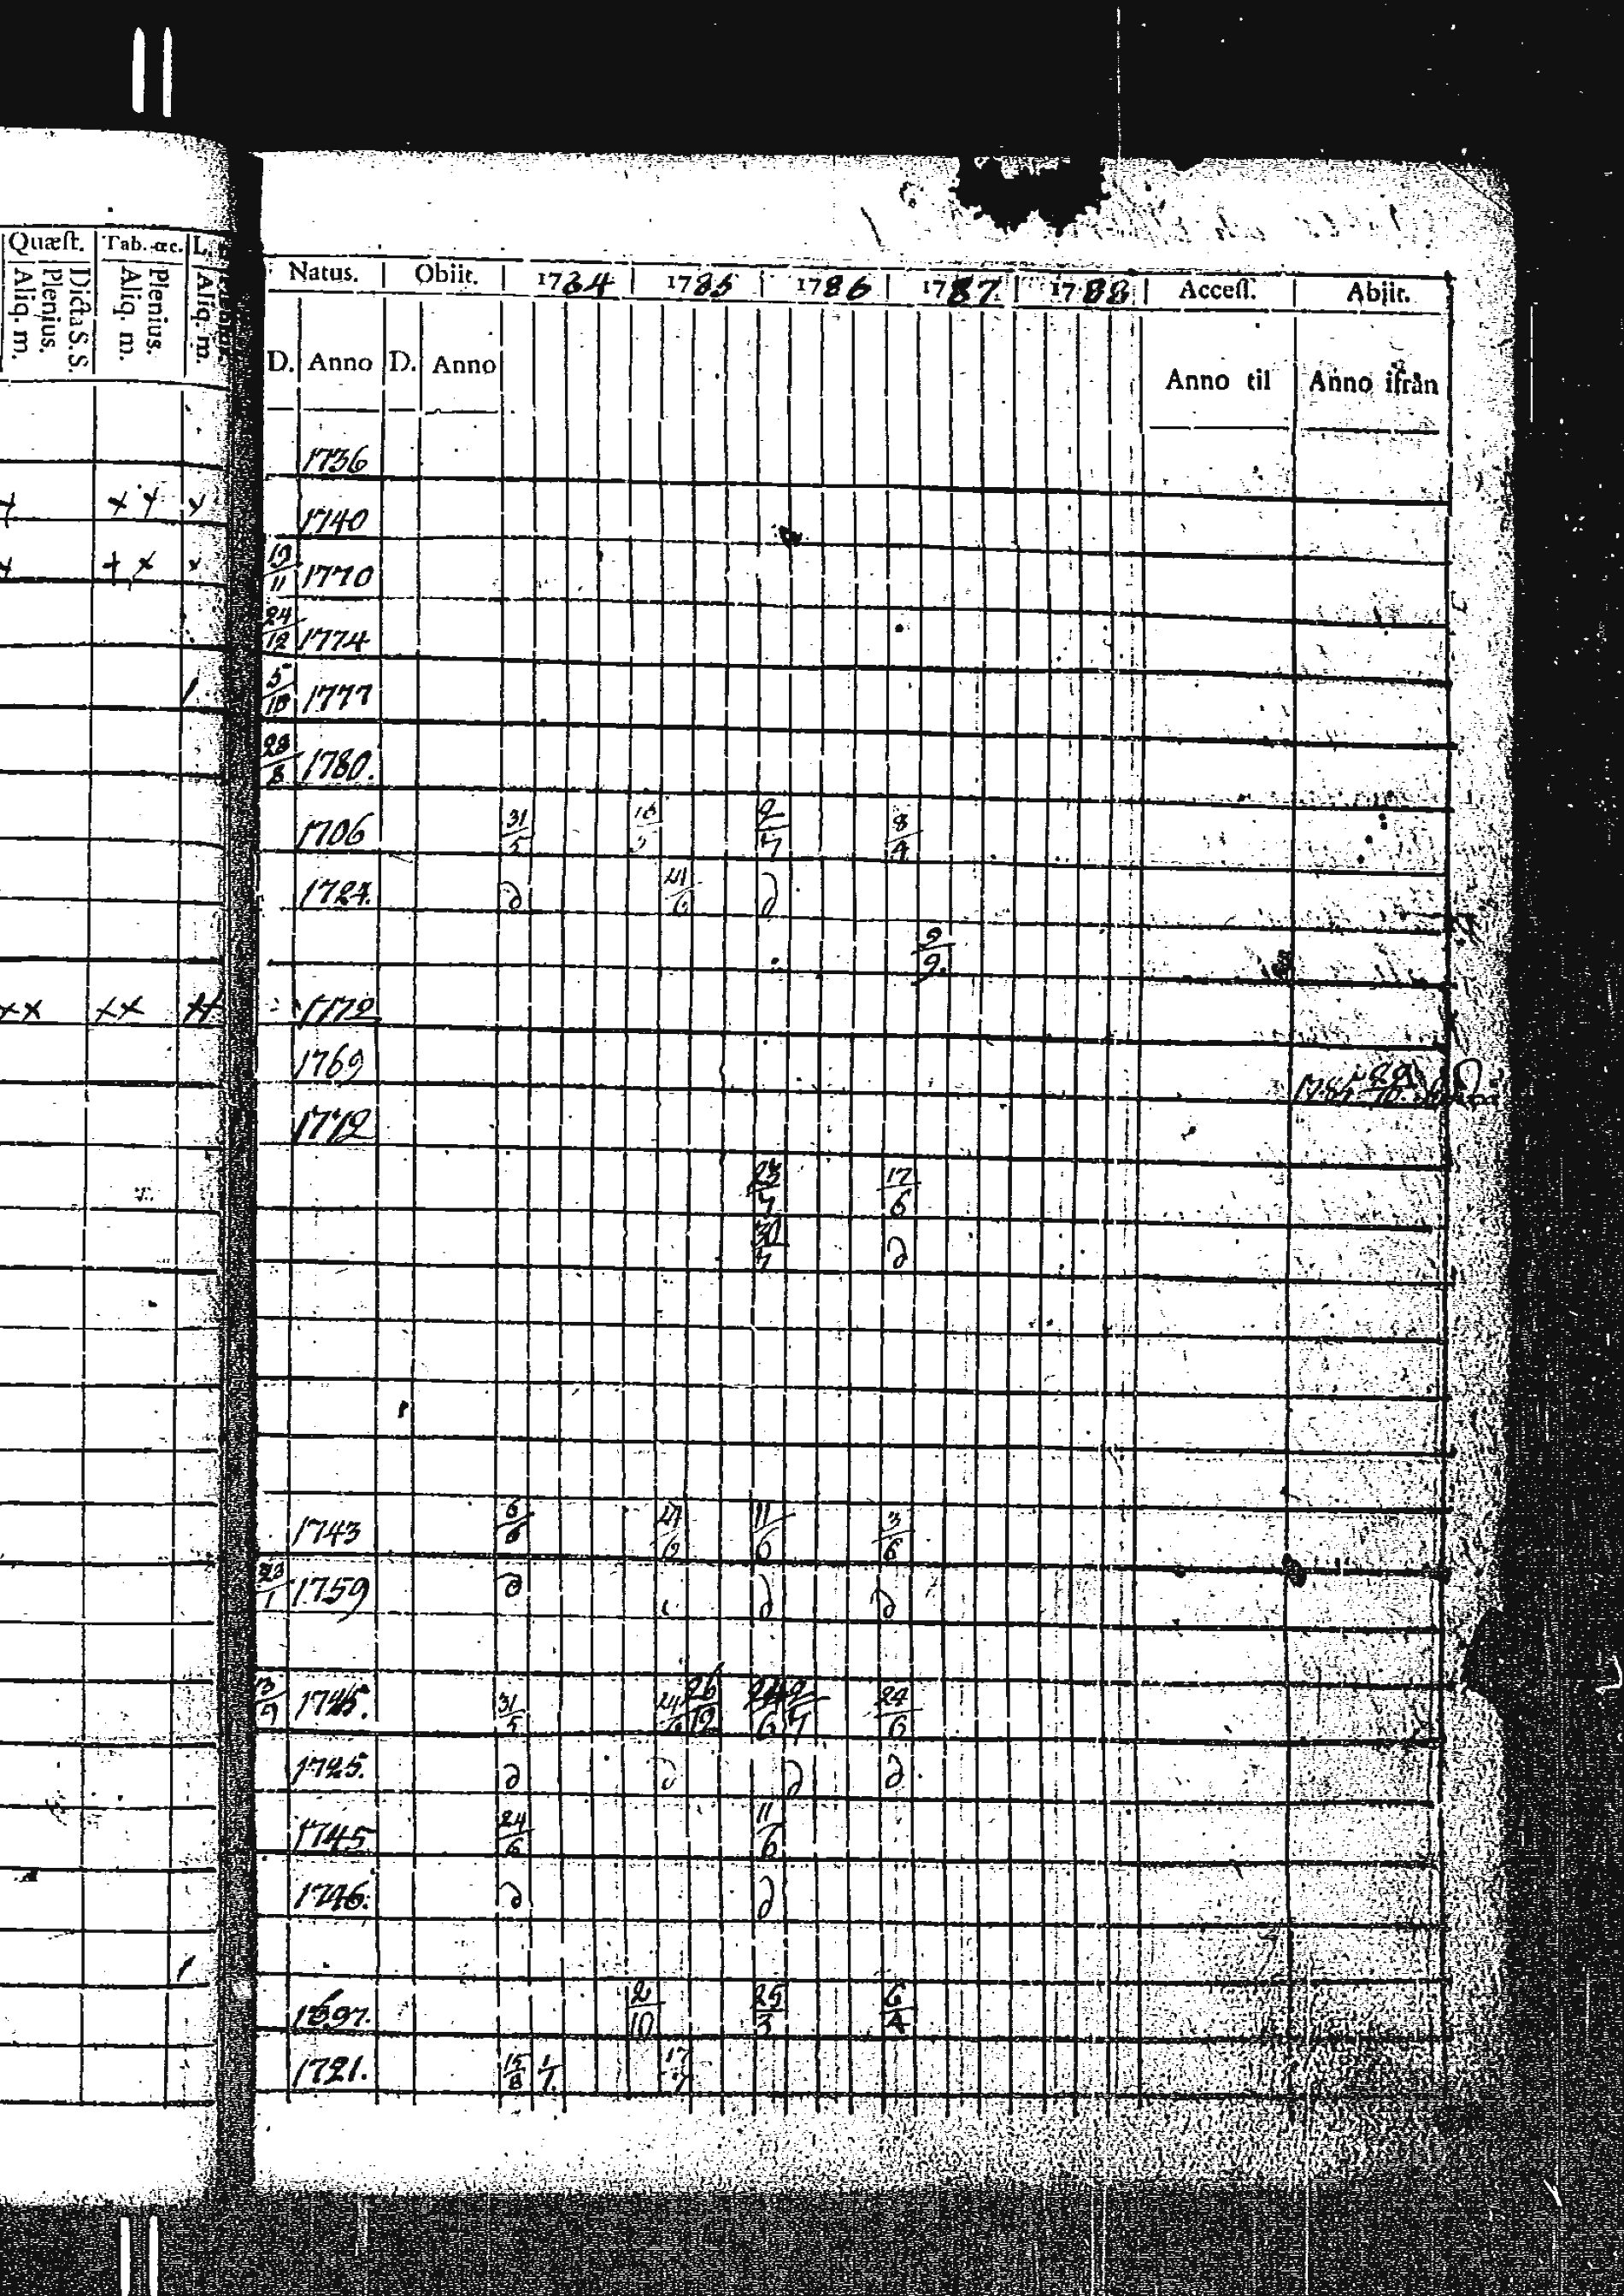 Quæſt. Tab. œc. L.
Dicta S. S. Plenius. Aliq. m. Plenius. Aliq. m. Aliq. m.
Natus. Obiit. 1784 1785 1786 1787 1788 Acceſſ. Abiit.
D. Anno D. Anno Anno til Anno ifrån
1736
x x x x
1740
x + x x
19/11 1770
24/12 1774
5/10 1777
28/8 1780.
1706 31/5 2/7 8/4
1724. d d
9/9.
xx xx 1772
1769 1785
1772
23/7 17/6
30/7 d
1743 6/6 11/6 3/6
23/1 1759 d d d
13/9 1745. 31/5 24/6 26/12 24/6 2/7 24/6
1725. d d d d
1745 24/6 11/6
1746. d d
1697. 2/10 25/3 6/4
1721. 15/8 1/7 17/7